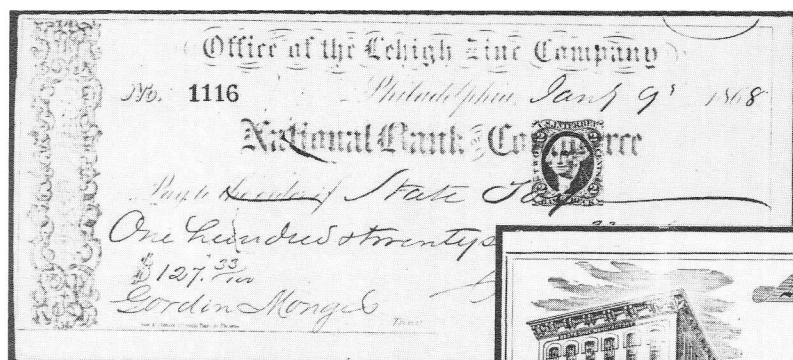 Office of the Lehigh Zinc Company
No. 1116 Philadelphia, Jany 9th 1868
National Bank of Commerce
Pay to the order of State Tax
One hundred & twenty
$127.33/100
Gordon Monges